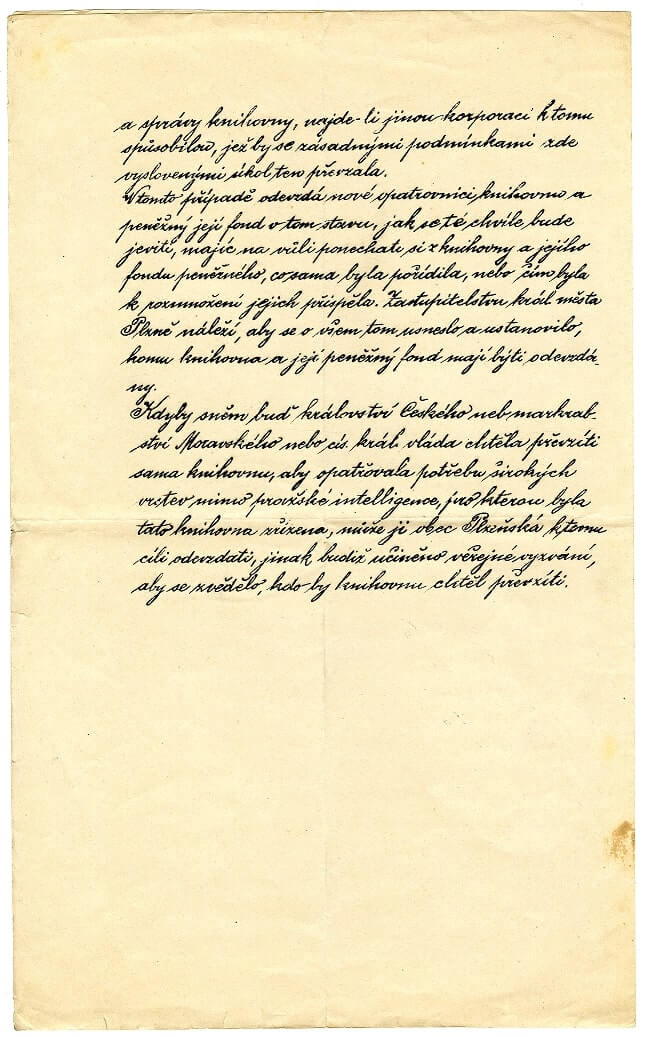 a správy knihovny, najde-li jinou korporaci k tomu
spůsobilou, jež by se zásadnými podmínkami zde
vyslovenými úkol ten převzala.
V tomto případě odevzdá nové opatrovnici knihovnu a
peněžný její fond v tom stavu, jak se té chvíle bude
jeviti, majíc na vůli ponechati si z knihovny a jejího
fondu peněžného, co sama byla pořídila, nebo čím byla
k rozmnožení jejich přispěla. Zastupitelstvu král. města
Plzně náleží, aby se o všem tom usneslo a ustanovilo,
komu knihovna a její peněžný fond mají býti odevzdá-
ny.
Kdyby sněm buď království Českého neb markrab-
ství Moravského nebo cís. král. vláda chtěla převzíti
sama knihovnu, aby opatřovala potřebu širokých
vrstev mimo pražské intelligence, pro kterou byla
tato knihovna zřízena, může ji obec Plzeňská k tomu
cíli odevzdati, jinak budiž učiněno veřejné vyzvání,
aby se zvědělo, kdo by knihovnu chtěl převzíti.